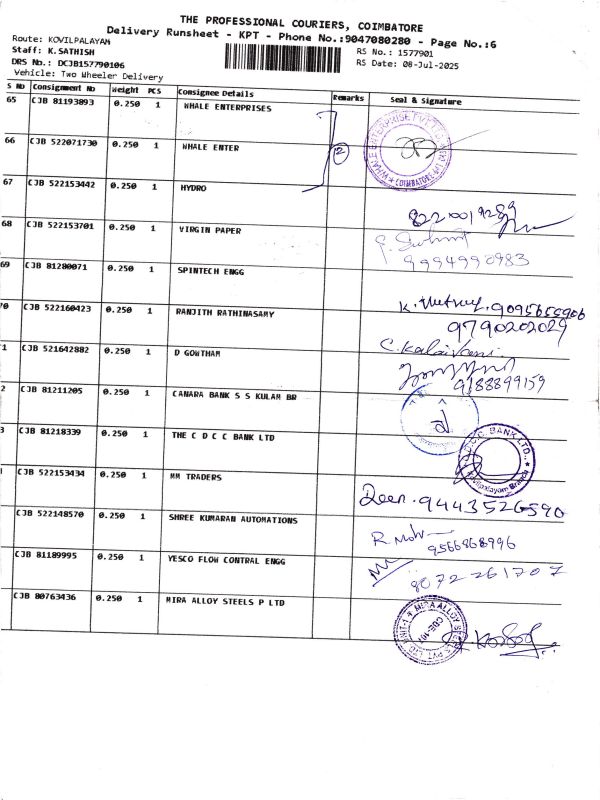 THE PROFESSIONAL COURIERS, COIMBATORE
Delivery Runsheet - KPT - Phone No.:9047080280 - Page No.:6
Route: KOVILPALAYAM
Staff: K.SATHISH
DRS No.: DCJB157790106
Vehicle: Two Wheeler Delivery
RS No.: 1577901
RS Date: 08-Jul-2025
S No Consignment No Weight PCS Consignee Details Remarks Seal & Signature
65 CJB 81193893 0.250 1 WHALE ENTERPRISES
66 CJB 522071730 0.250 1 WHALE ENTER 2
67 CJB 522153442 0.250 1 HYDRO
68 CJB 522153701 0.250 1 VIRGIN PAPER
9994990983
69 CJB 81280071 0.250 1 SPINTECH ENGG
70 CJB 522160423 0.250 1 RANJITH RATHINASAMY
9790202029
1 CJB 521642882 0.250 1 D GOWTHAM C. Kalaivani
9188899159
2 CJB 81211205 0.250 1 CANARA BANK S S KULAM BR
3 CJB 81218339 0.250 1 THE C D C C BANK LTD
CJB 522153434 0.250 1 MM TRADERS
Deen. 9443526590
CJB 522148570 0.250 1 SHREE KUMARAN AUTOMATIONS
9566868996
CJB 81189995 0.250 1 YESCO FLOW CONTRAL ENGG
8072261707
CJB 80763436 0.250 1 MIRA ALLOY STEELS P LTD
MIRA ALLOY STEELS PVT. LTD. UNIT-1